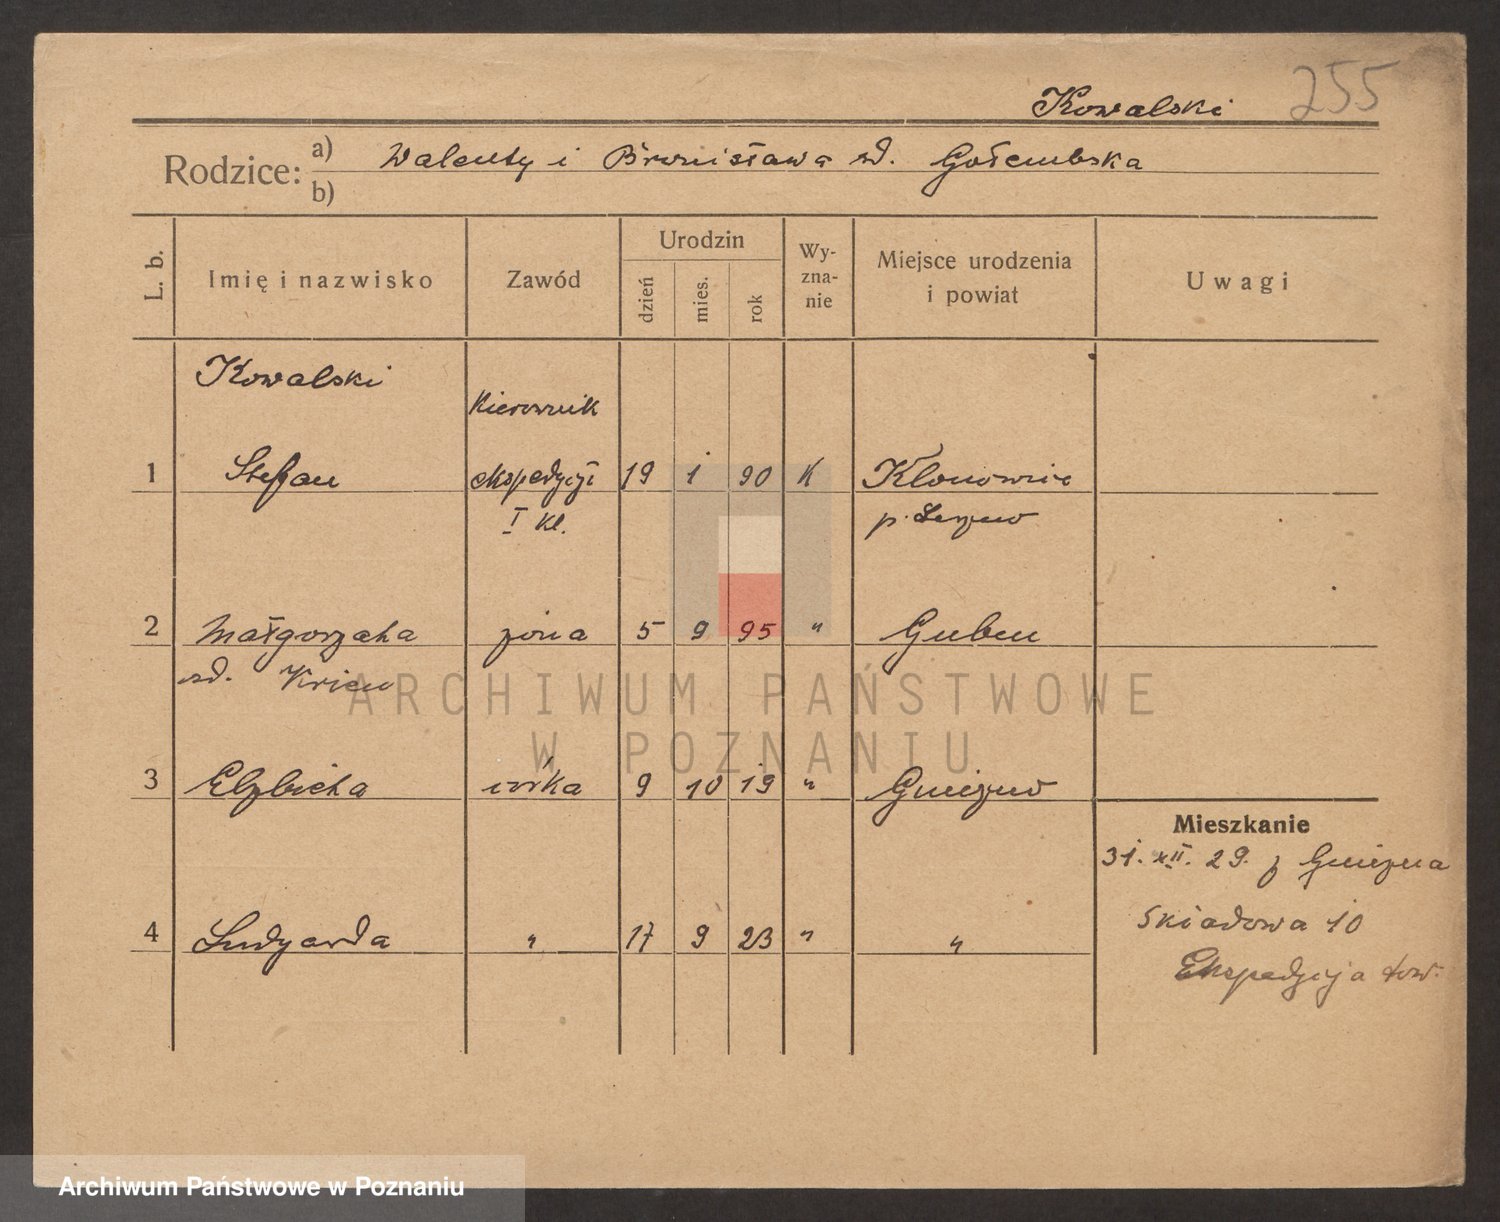 255
Kowalski
Rodzice: a) Walenty i Bronisława zd. Gołembska
b)
L. b.
Imię i nazwisko
Zawód
Urodzin
dzień
mies.
rok
Wy-
zna-
nie
Miejsce urodzenia
i powiat
Uwagi
Kowalski
Kierownik
1 Stefan ekspedycji 19 1 90 K Klonowiec
I kl. p. Leszno
2 Małgorzata żona 5 9 95 " Guben
zd. Krien
3 Elżbieta córka 9 10 19 " Gniezno
Mieszkanie
31. XII. 29. z Gniezna
4 Ludgarda " 17 9 23 " "
Składowa 10
Ekspedycja tow.
ARCHIWUM PAŃSTWOWE
W POZNANIU
Archiwum Państwowe w Poznaniu